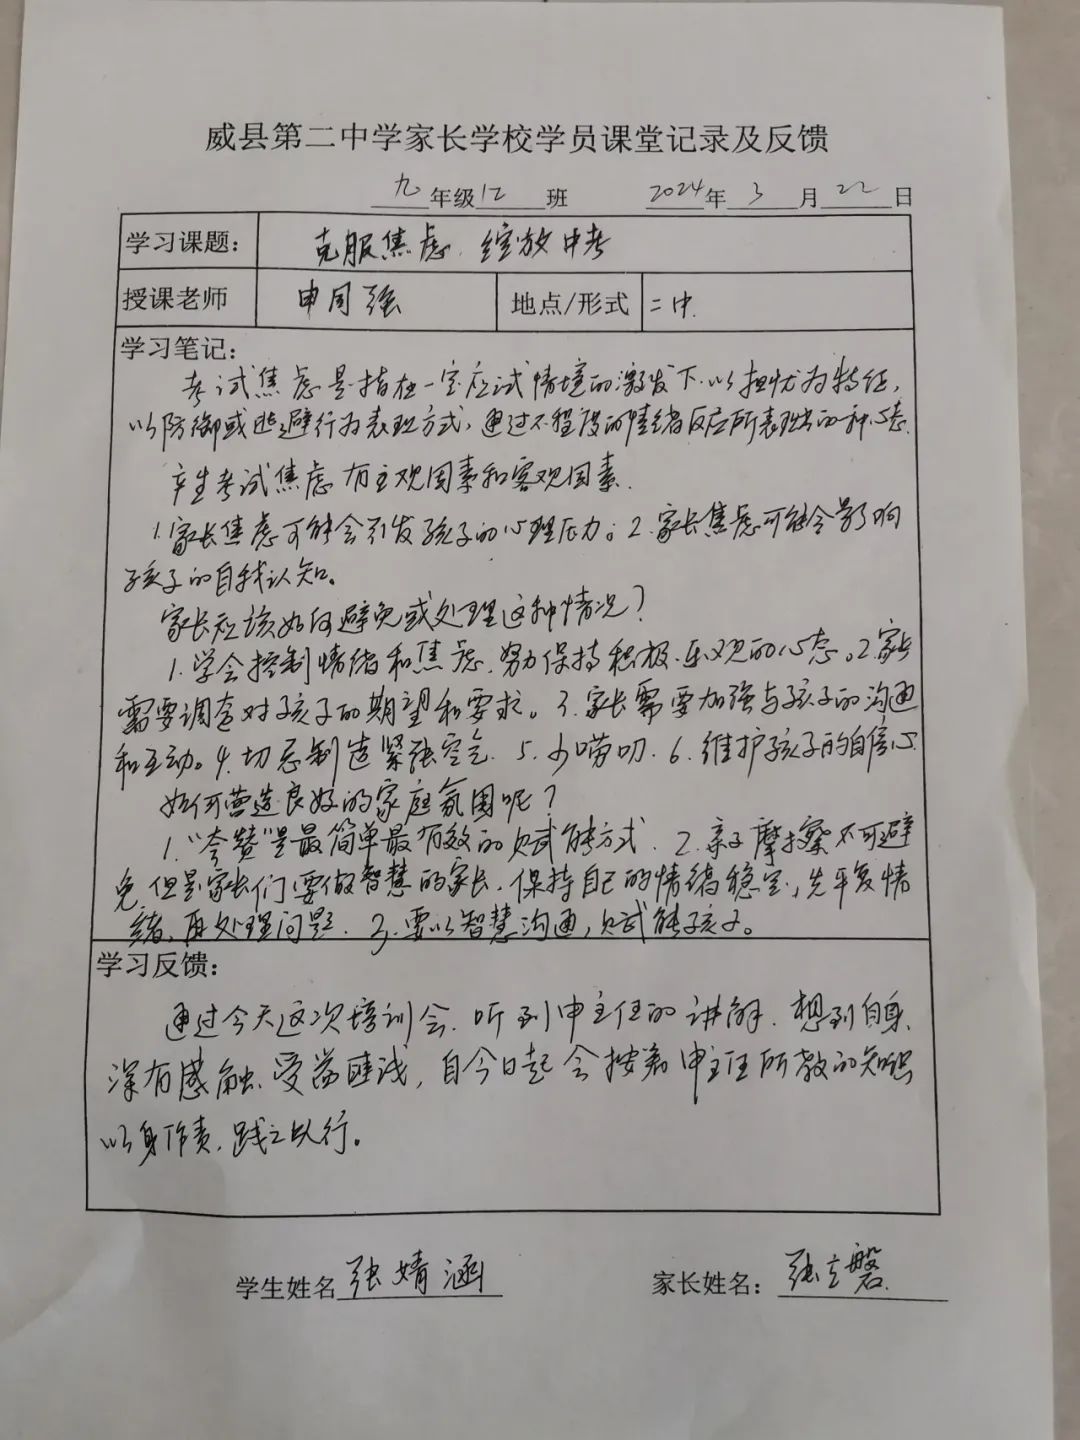 威县第二中学家长学校学员课堂记录及反馈
九年级12班 2024年3月22日
学习课题： 克服焦虑.绽放中考
授课老师 申同强 地点/形式 二中.
学习笔记：
考试焦虑是指在一定应试情境的激发下.以担忧为特征,
以防御或逃避行为表现方式,通过不程度的情绪反应所表现出的一种心态.
产生考试焦虑有主观因素和客观因素.
1.家长焦虑可能会引发孩子的心理压力。2.家长焦虑可能会影响
孩子的自我认知。
家长应该如何避免或处理这种情况?
1.学会控制情绪和焦虑.努力保持积极.乐观的心态。2家长
需要调查对孩子的期望和要求。3.家长需要加强与孩子的沟通
和互动。4.切忌制造紧张空气. 5.少唠叨.6.维护孩子的自信心.
如何营造良好的家庭氛围呢?
1."夸赞"是最简单最有效的赋能方式.2.亲子摩擦不可避
免.但是家长们要做智慧的家长.保持自己的情绪稳定,先平复情
绪,再处理问题.3.要以智慧沟通,赋能孩子。
学习反馈：
通过今天这次培训会.听到申主任的讲解.想到自身.
深有感触.受益匪浅,自今日起会按着申主任所教的知识
以身作责.践之以行。
学生姓名 张婧涵 家长姓名： 张立磐.